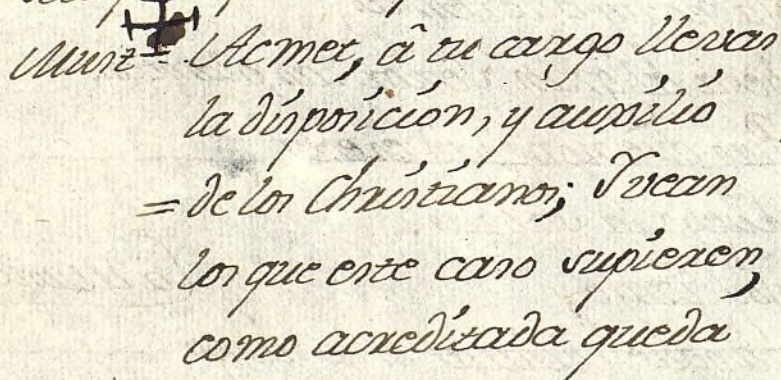 Must = Acmet, â tu cargo llevas
la disposicion, y auxilio
= de los Christianos; Y vean
los que este caso supieren,
como acreditada queda